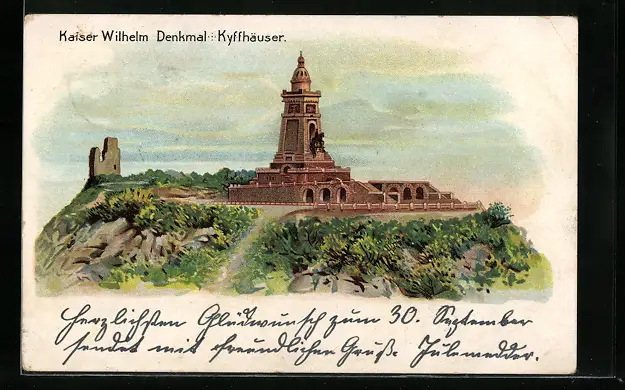 Kaiser Wilhelm Denkmal : Kyffhäuser.
Herzlichsten Glückwunsch zum 30. September
sendet mit freundlichen Gruß.